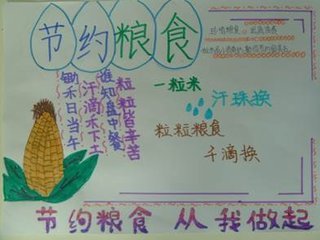 节约粮食
锄禾日当午
汗滴禾下土
谁知盘中餐
粒粒皆辛苦
一粒米
汗珠换
粒粒粮食
千滴换
节约粮食 从我做起